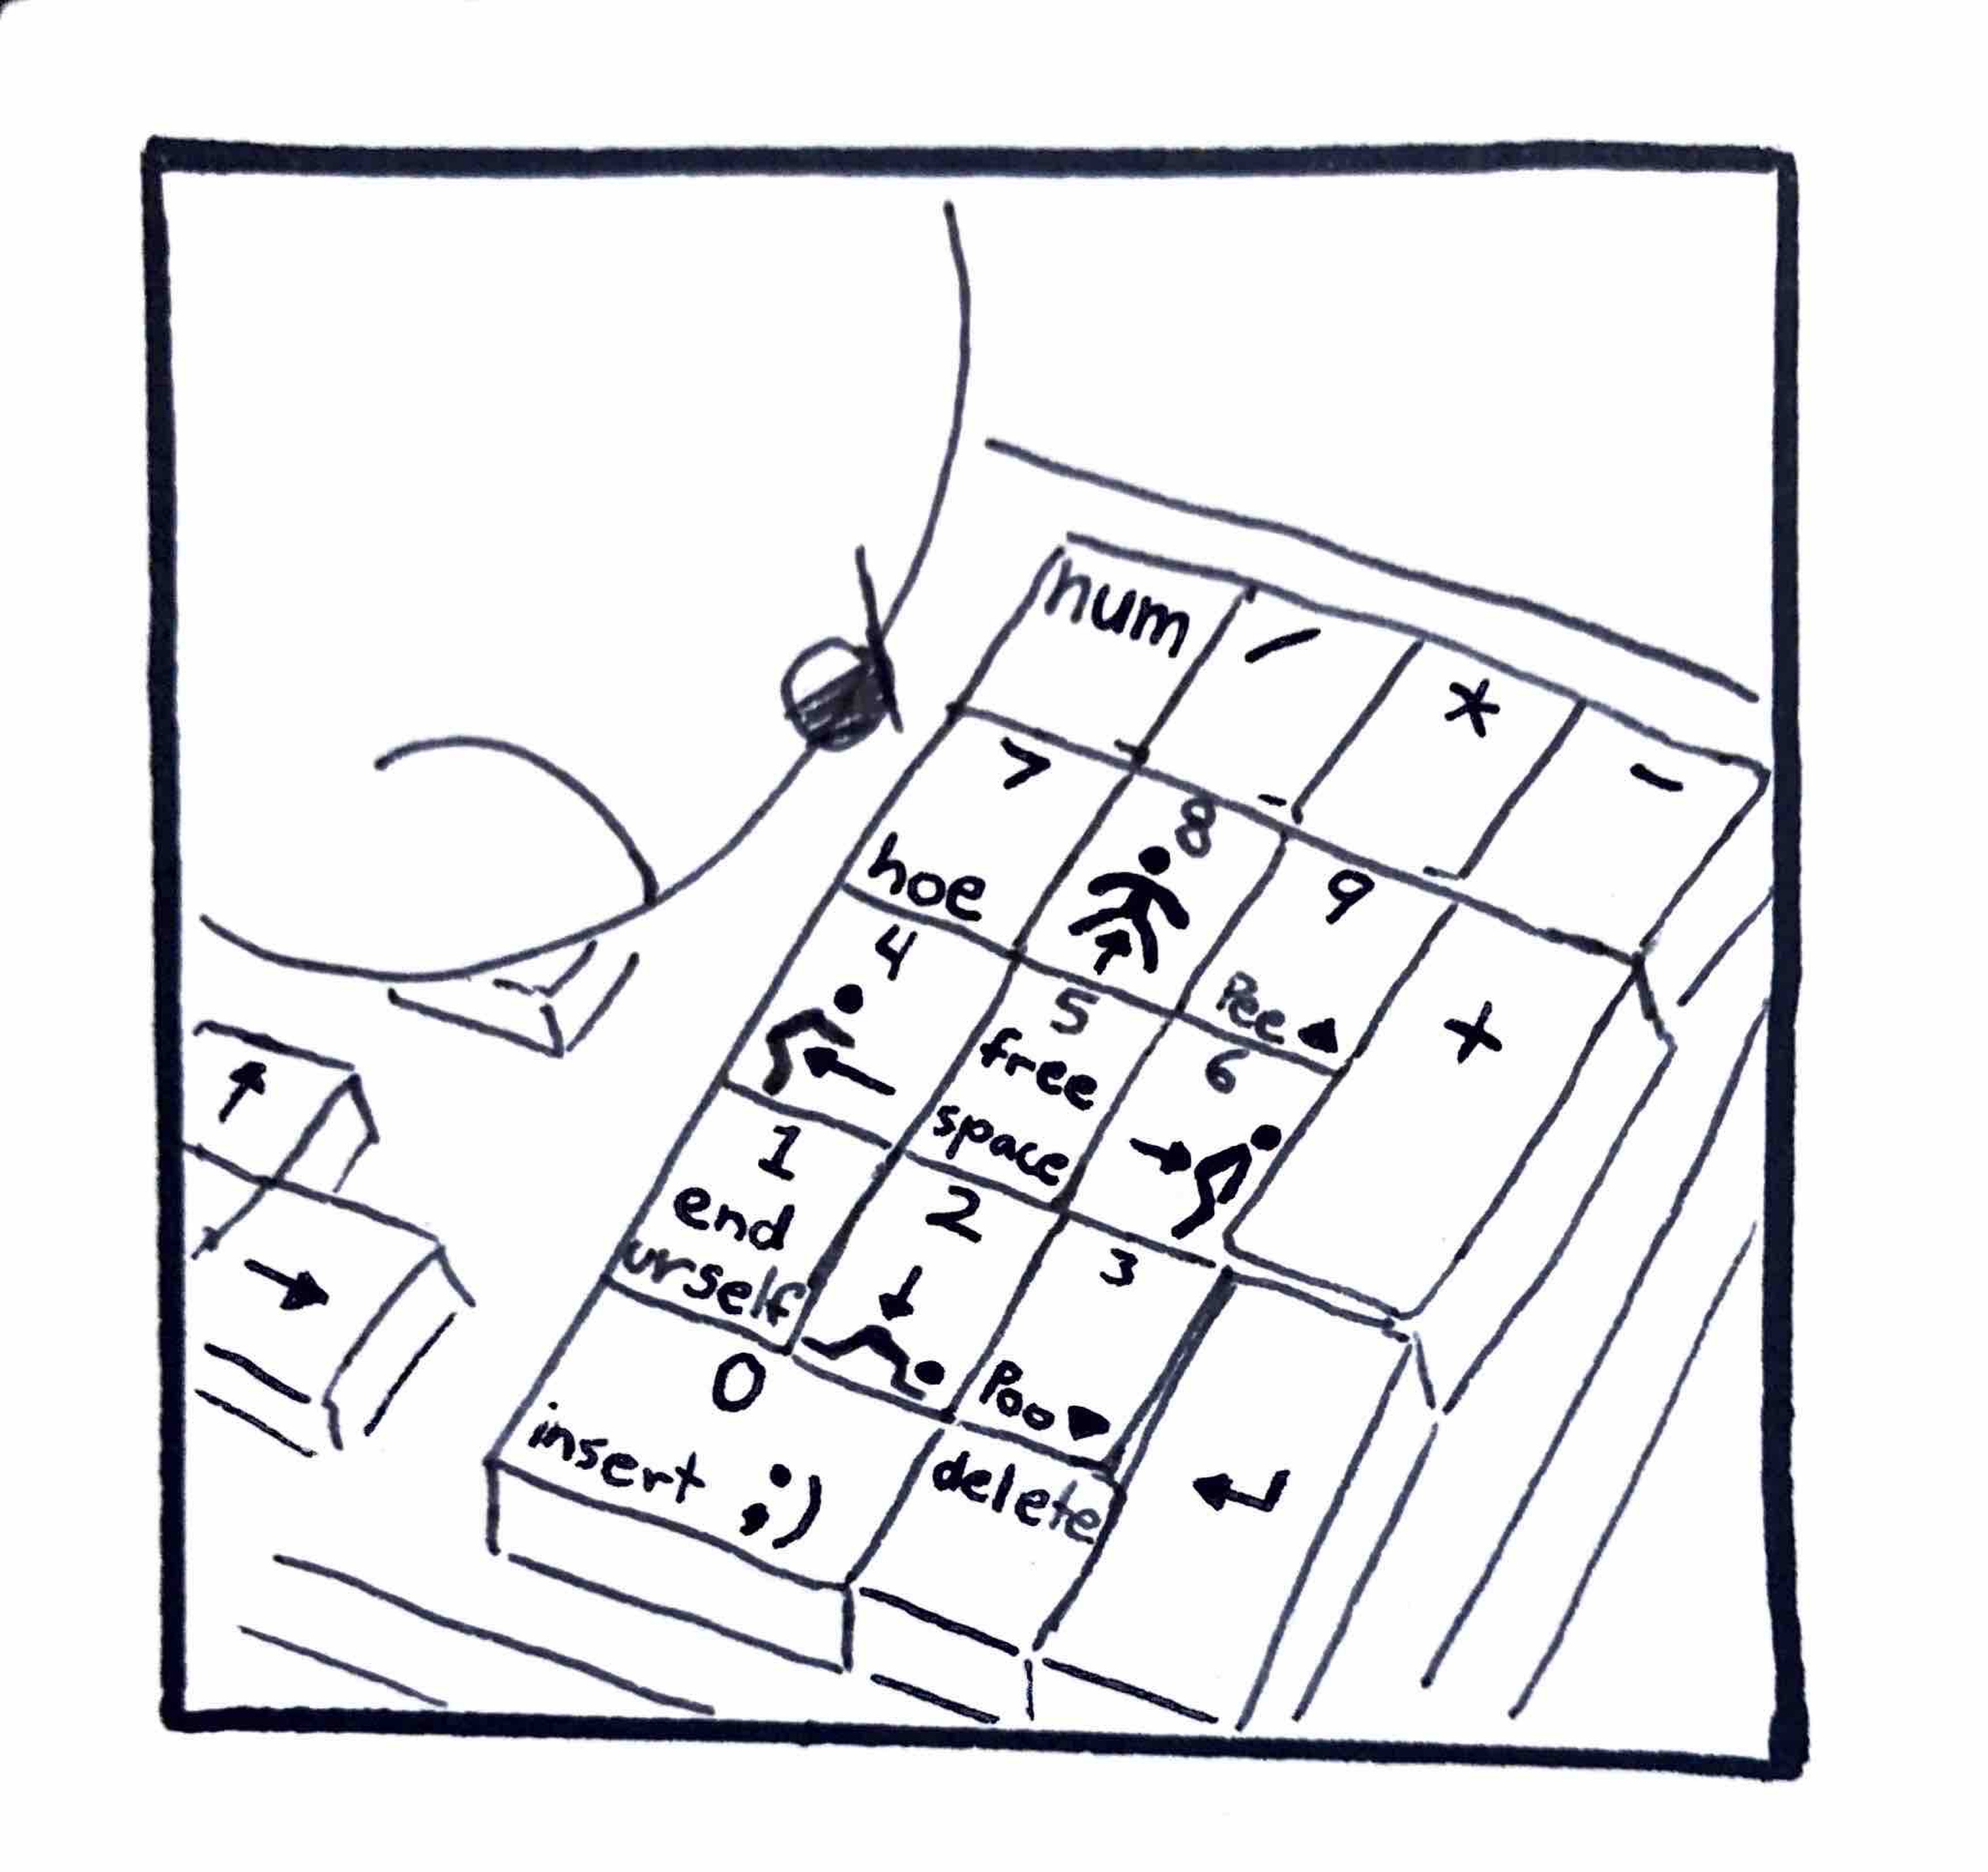 num / * -
7
hoe
8
9
Pee ▲
+
4
←
5
free
space
6
→
1
end
urself
2
↓
3
Poo ▼
0
insert ;)
delete
↵
↑
→